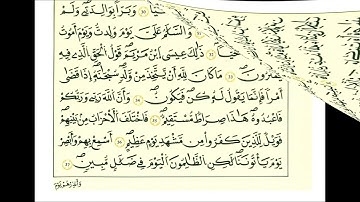 حَيّاً 30 وَبَرّاً بِوَالِدَتِے وَلَمْ
31 وَالسَّلَٰمُ عَلَيَّ يَوْمَ وُلِدتُّ وَيَوْمَ أَمُوتُ
حَيّاً 32 ذَٰلِكَ عِيسَى اَبْنُ مَرْيَمَ قَوْلُ الْحَقِّ الَّذِے فِيهِ
يَمْتَرُونَ 33 مَا كَانَ لِلهِ أَنْ يَّتَّخِذَ مِنْ وَّلَدٍ سُبْحَٰنَهُۥ إِذَا قَضَىٰ
أَمْراً فَإِنَّمَا يَقُولُ لَهُۥ كُن فَيَكُونُ 34 وَأَنَّ اللَّهَ رَبِّے وَرَبُّكُمْ
فَاعْبُدُوهُ هَٰذَا صِرَٰطٌ مُّسْتَقِيمٌ 35 فَاخْتَلَفَ الْأَحْزَابُ مِنۢ بَيْنِهِمْ
فَوَيْلٌ لِّلَّذِينَ كَفَرُواْ مِن مَّشْهَدِ يَوْمٍ عَظِيمٍ 36 أَسْمِعْ بِهِمْ وَأَبْصِرْ
يَوْمَ يَأْتُونَنَا لَٰكِنِ الظَّٰلِمُونَ الْيَوْمَ فِے ضَلَٰلٍ مُّبِينٍ 37
وَأَنذِرْهُمْ يَوْمَ